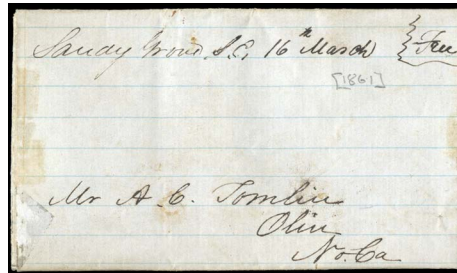 Sandy Grove S.C. 16th March
Free
[1861]
Mr A. C. Tomlin
Olin
No. Ca